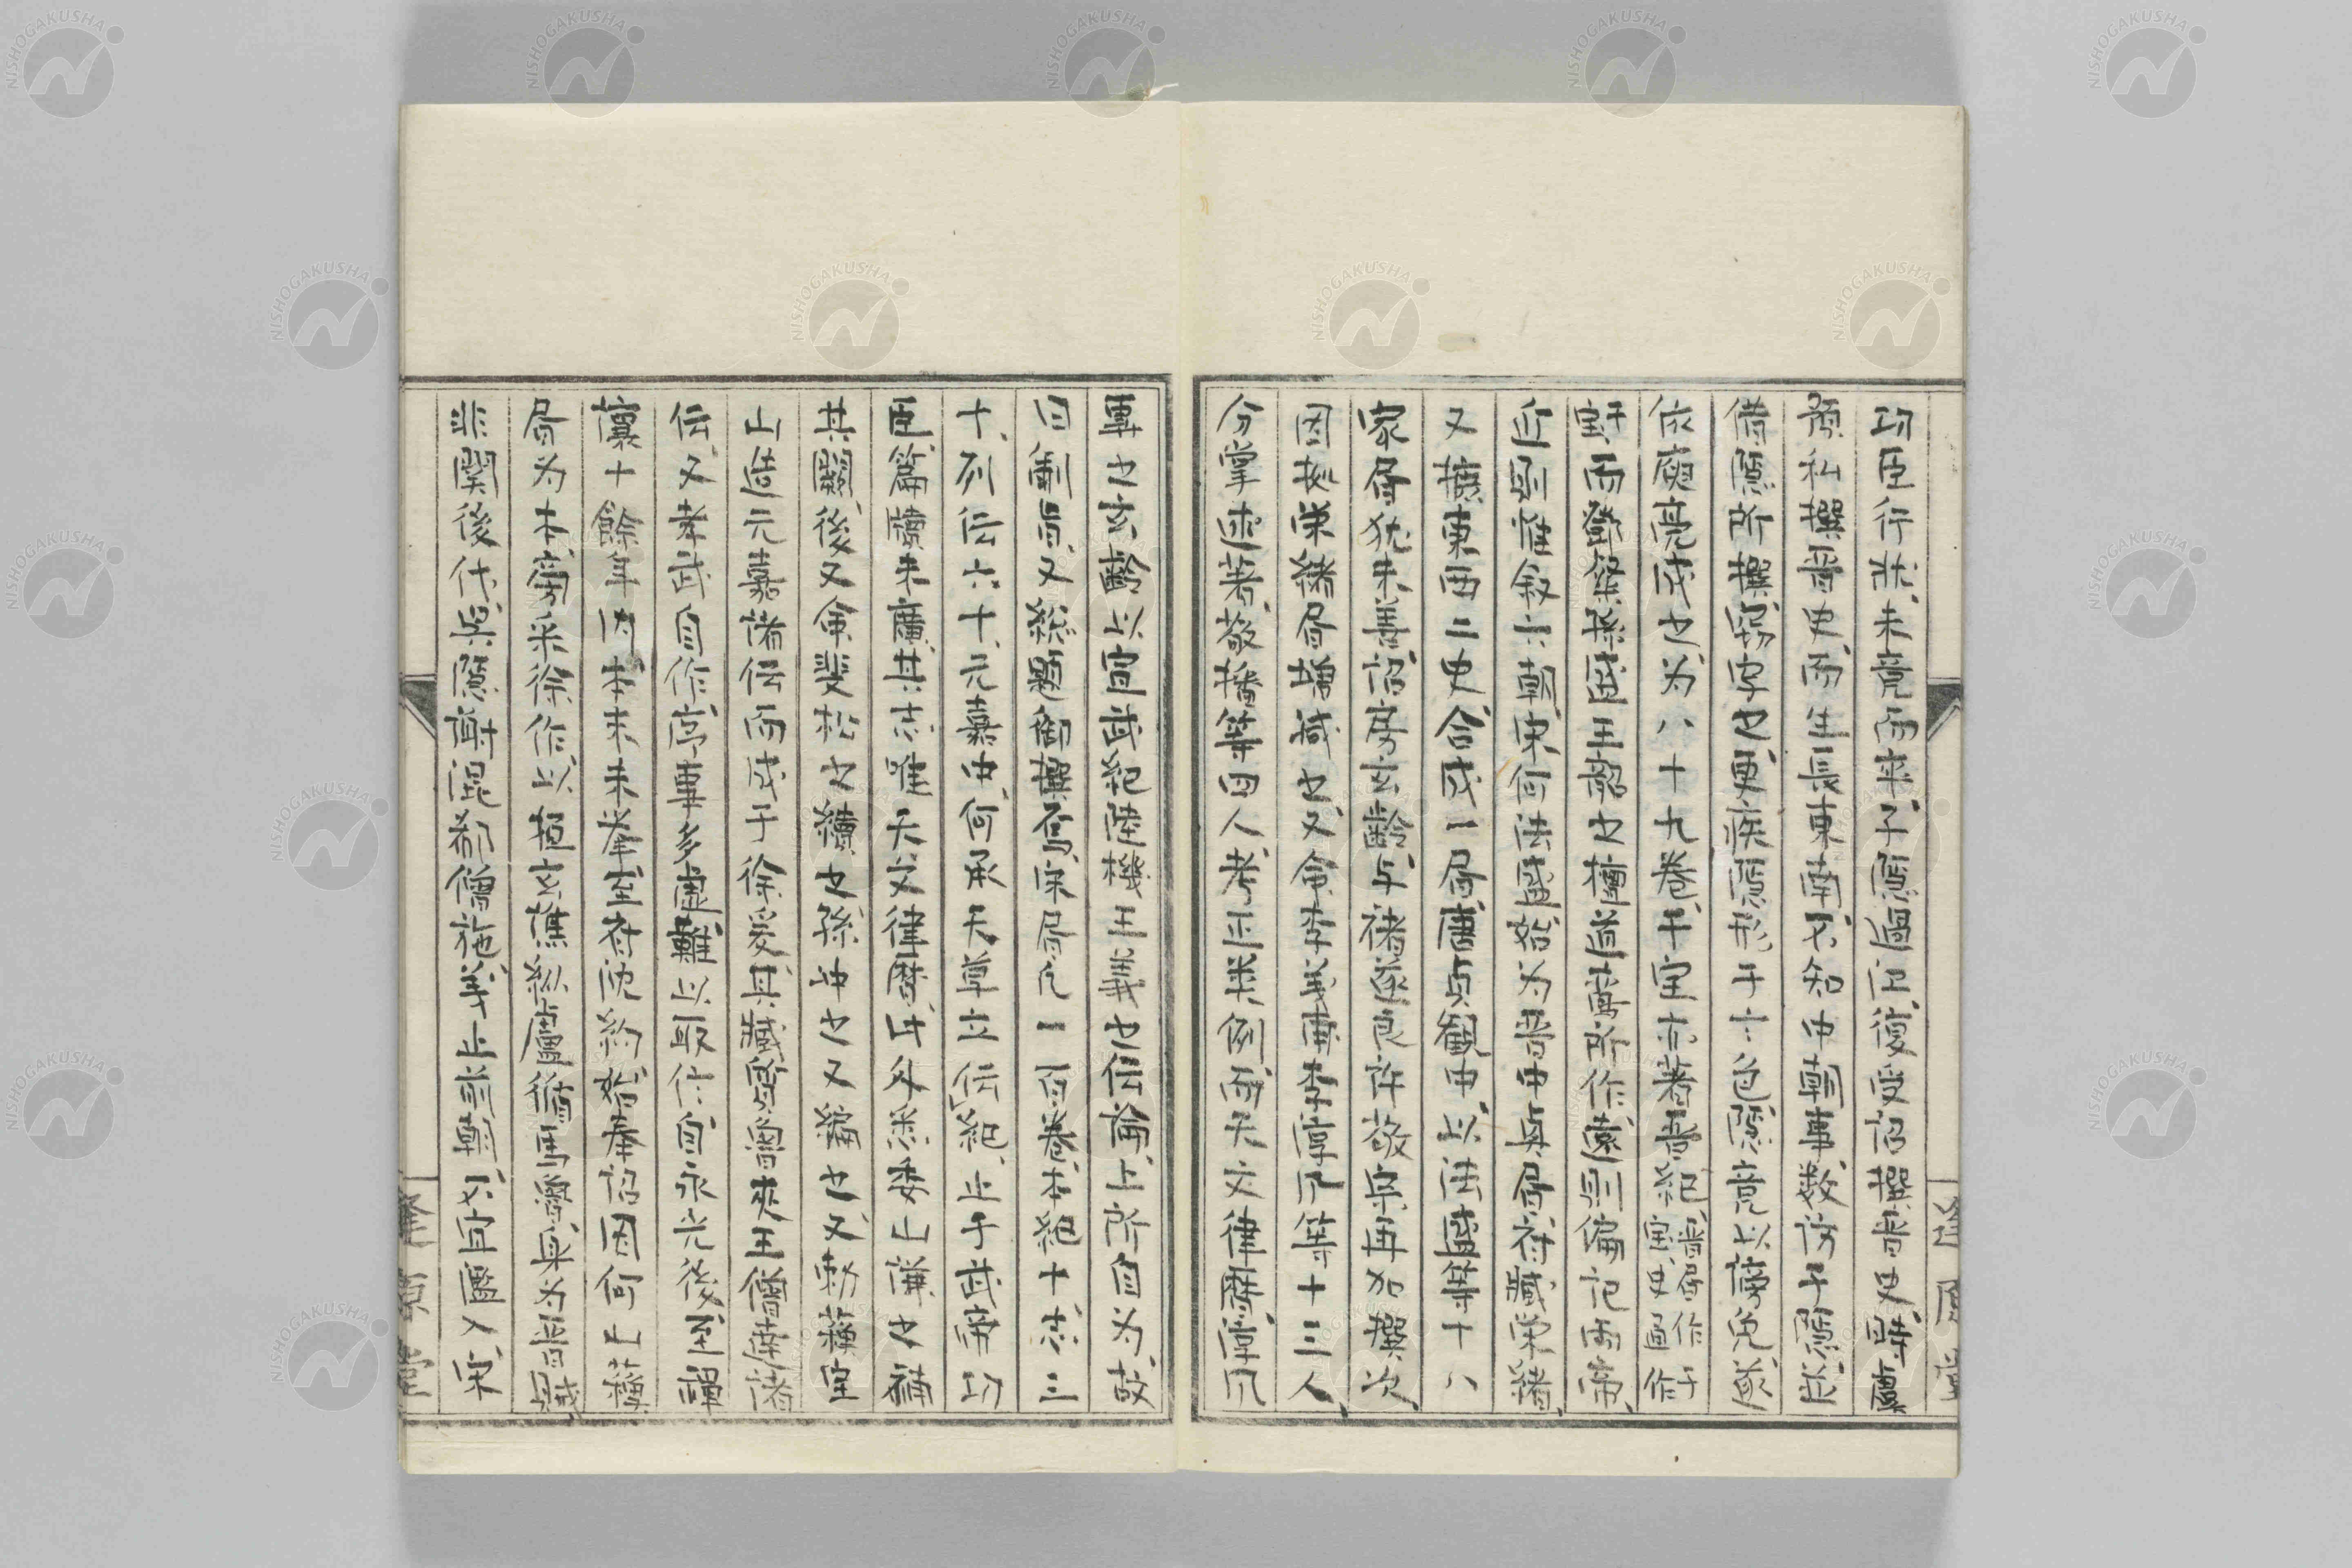 功臣行状、未竟而卒、子隠過江、復受詔撰晋史、時虞
預私撰晋史、而生長東南、不知中朝事、数訪于隠、並
借隠所撰、窃写之、更疾隠、形于言色、隠竟以謗免、遂
依庾亮成之、为八十九巻、干宝亦著晋紀、晋書作于宝、史通作干
宝、而鄧粲孫盛王韶之檀道鸞所作、遠則偏記両帝、
近則惟叙六朝、宋何法盛始为晋中興書、斉臧栄緒、
又摭東西二史、合成一書、唐貞観中、以法盛等十八
家書、犹未善、詔房玄齢与褚遂良許敬宗再加撰次、
因拠栄緒書増減之、又命李義甫李淳風等十三人、
分掌述著、敬播等四人、考正类例、而天文律暦、淳風
専之、玄齢以宣武紀陸機王羲之伝論、上所自为、故
曰制旨、又総題御撰焉、宋書凡一百巻、本紀十、志三
十、列伝六十、元嘉中、何承天草立伝紀、止于武帝功
臣、篇牘未廣、其志唯天文律暦、此外悉委山謙之補
其闕、後又命裴松之續之、孫冲之又編之、又勅蘇宝
山造元嘉諸伝、而成于徐爰、其臧質魯爽王僧達諸
伝、又孝武自作、序事多虚、難以取信、自永光後、至禅
譲十餘年内、本来未挙、至斉沈約、始奉詔因何山蘇
書为本、旁采徐作、以桓玄譙縦盧循馬魯、身为晋賊
非関後代、呉隠謝混郗僧施、義止前朝、不宜濫入宋
逢原堂